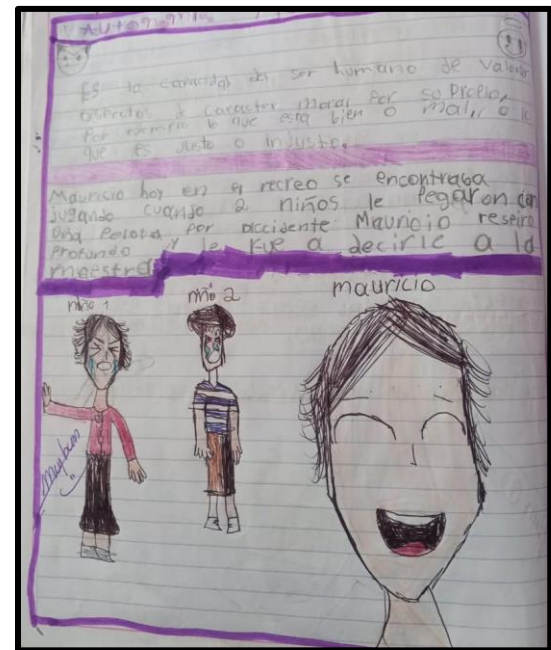 Es la capacidad del ser humano de valorar
aspectos de caracter moral por so
por ejemplo lo que esta bien o mal, o lo
que es Justo o injusto.
Mauricio hoy en el recreo se encontraba
jugando cuando 2 niños le Pegaron con
Una Pelota Por accidente Mauricio
Profundo y le fue a decirle a la
maestra
niño 1
niño 2
mauricio